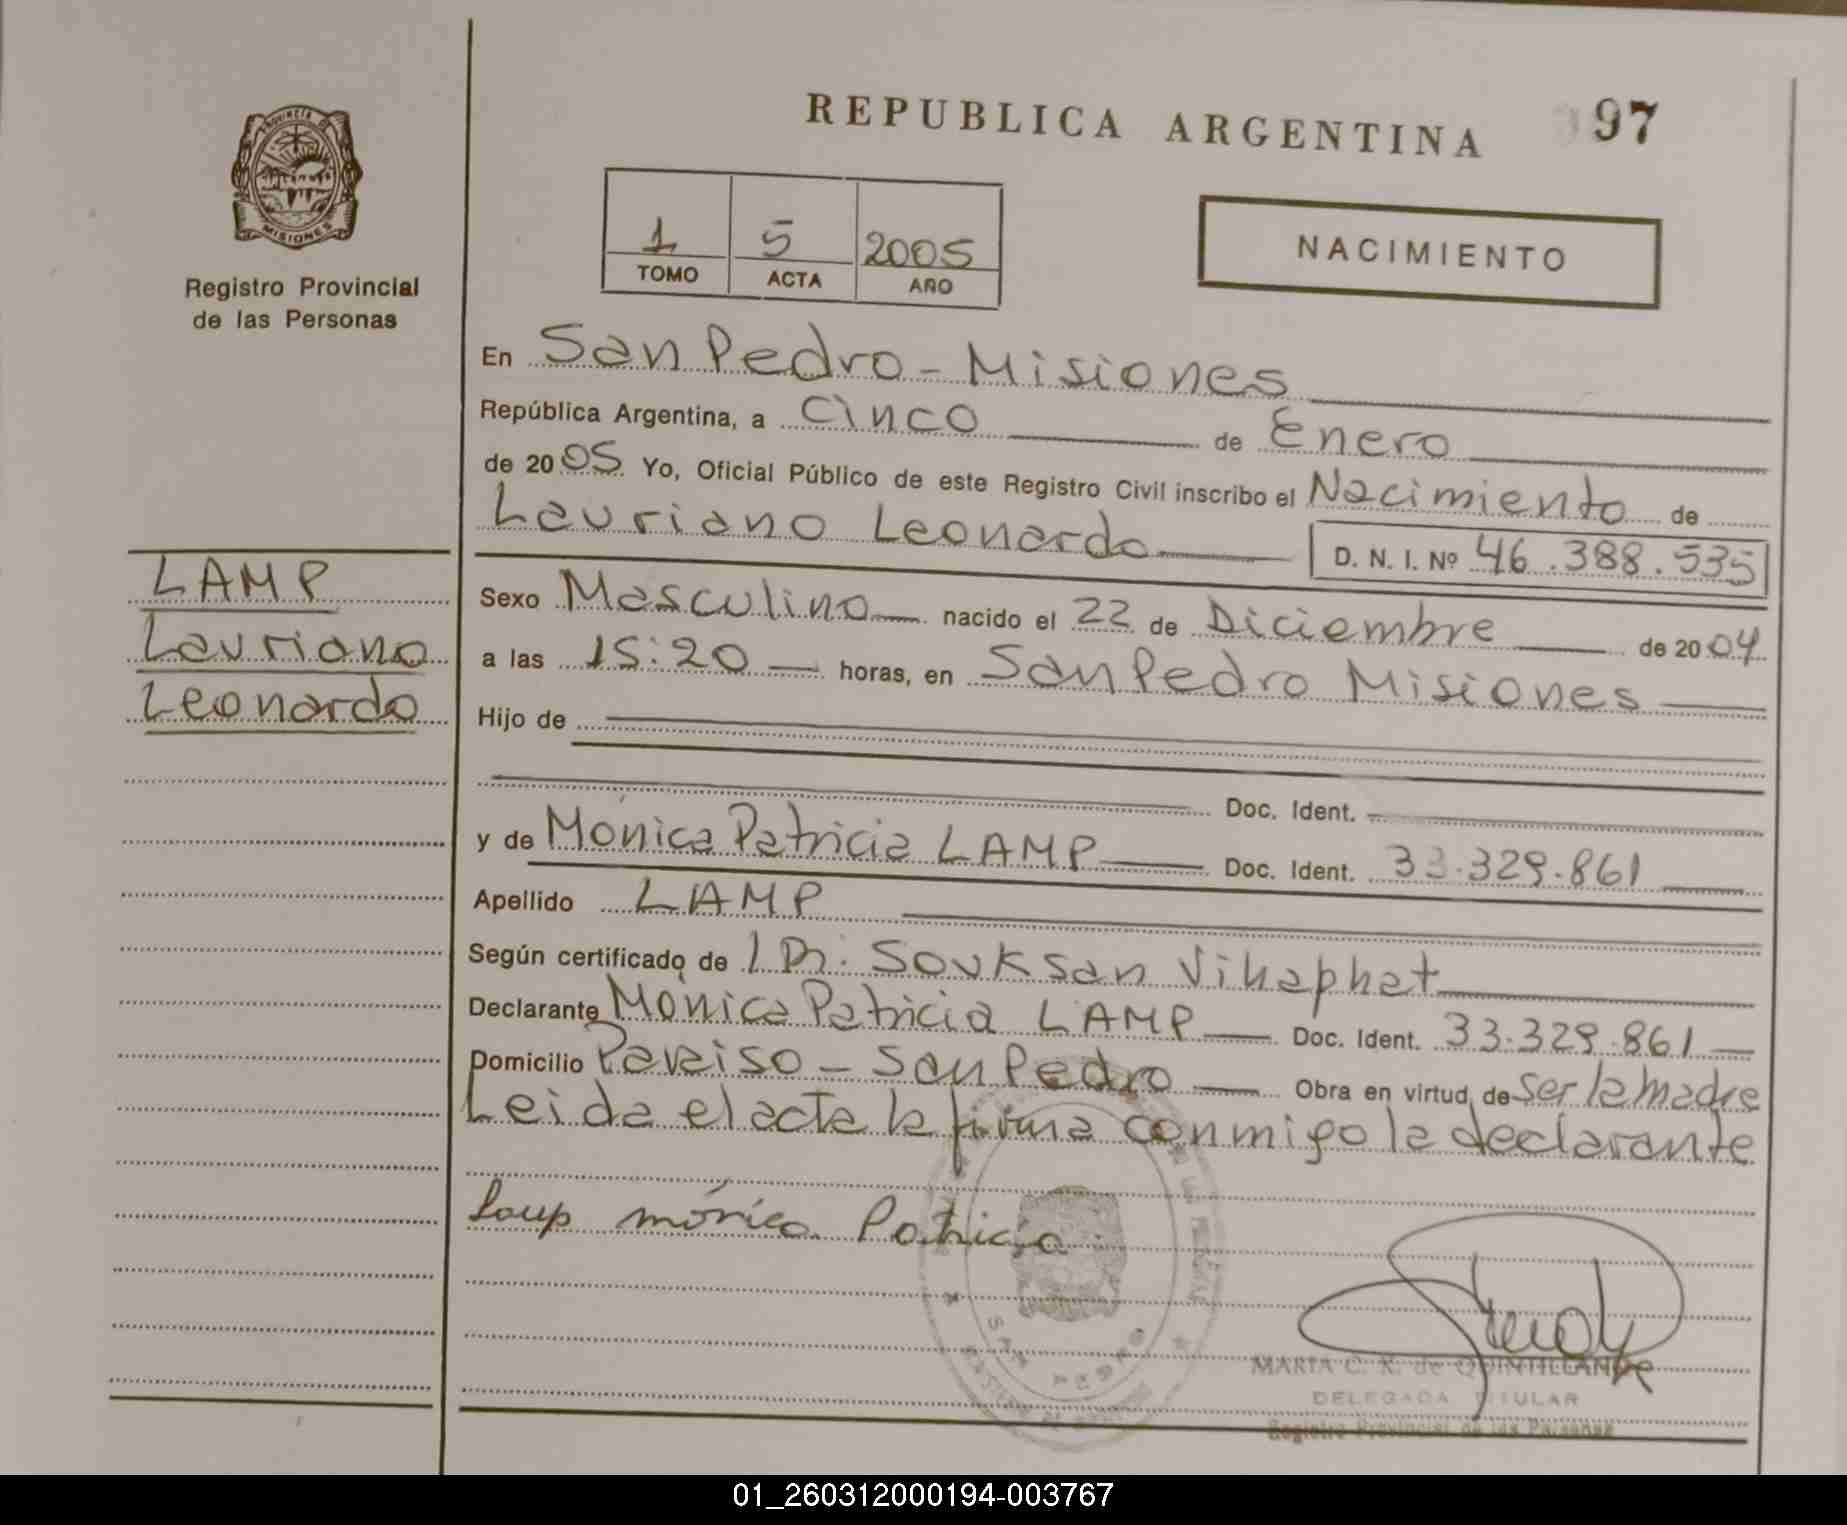 REPUBLICA ARGENTINA
97
PROVINCIA DE
MISIONES
Registro Provincial
de las Personas
1 5 2005
TOMO ACTA AÑO
NACIMIENTO
En San Pedro - Misiones
República Argentina, a Cinco de Enero
de 2005 Yo, Oficial Público de este Registro Civil inscribo el Nacimiento de
Lauriano Leonardo D. N. I. Nº 46.388.535
LAMP
Lauriano
Leonardo
Sexo Masculino nacido el 22 de Diciembre de 2004
a las 15:20 horas, en San Pedro Misiones
Hijo de
Doc. Ident.
y de Mónica Patricia LAMP Doc. Ident. 33.329.861
Apellido LAMP
Según certificado de 1 Dr. Souksan Vihaphat
Declarante Mónica Patricia LAMP Doc. Ident. 33.329.861
Domicilio Paraiso - San Pedro Obra en virtud de Ser la madre
Leida el acta la firma conmigo la declarante
Lamp mónica Patricia
MARIA C. K. de QUINTILLAN
DELEGADA TITULAR
Registro Provincial de las Personas
SAN PEDRO
01_260312000194-003767